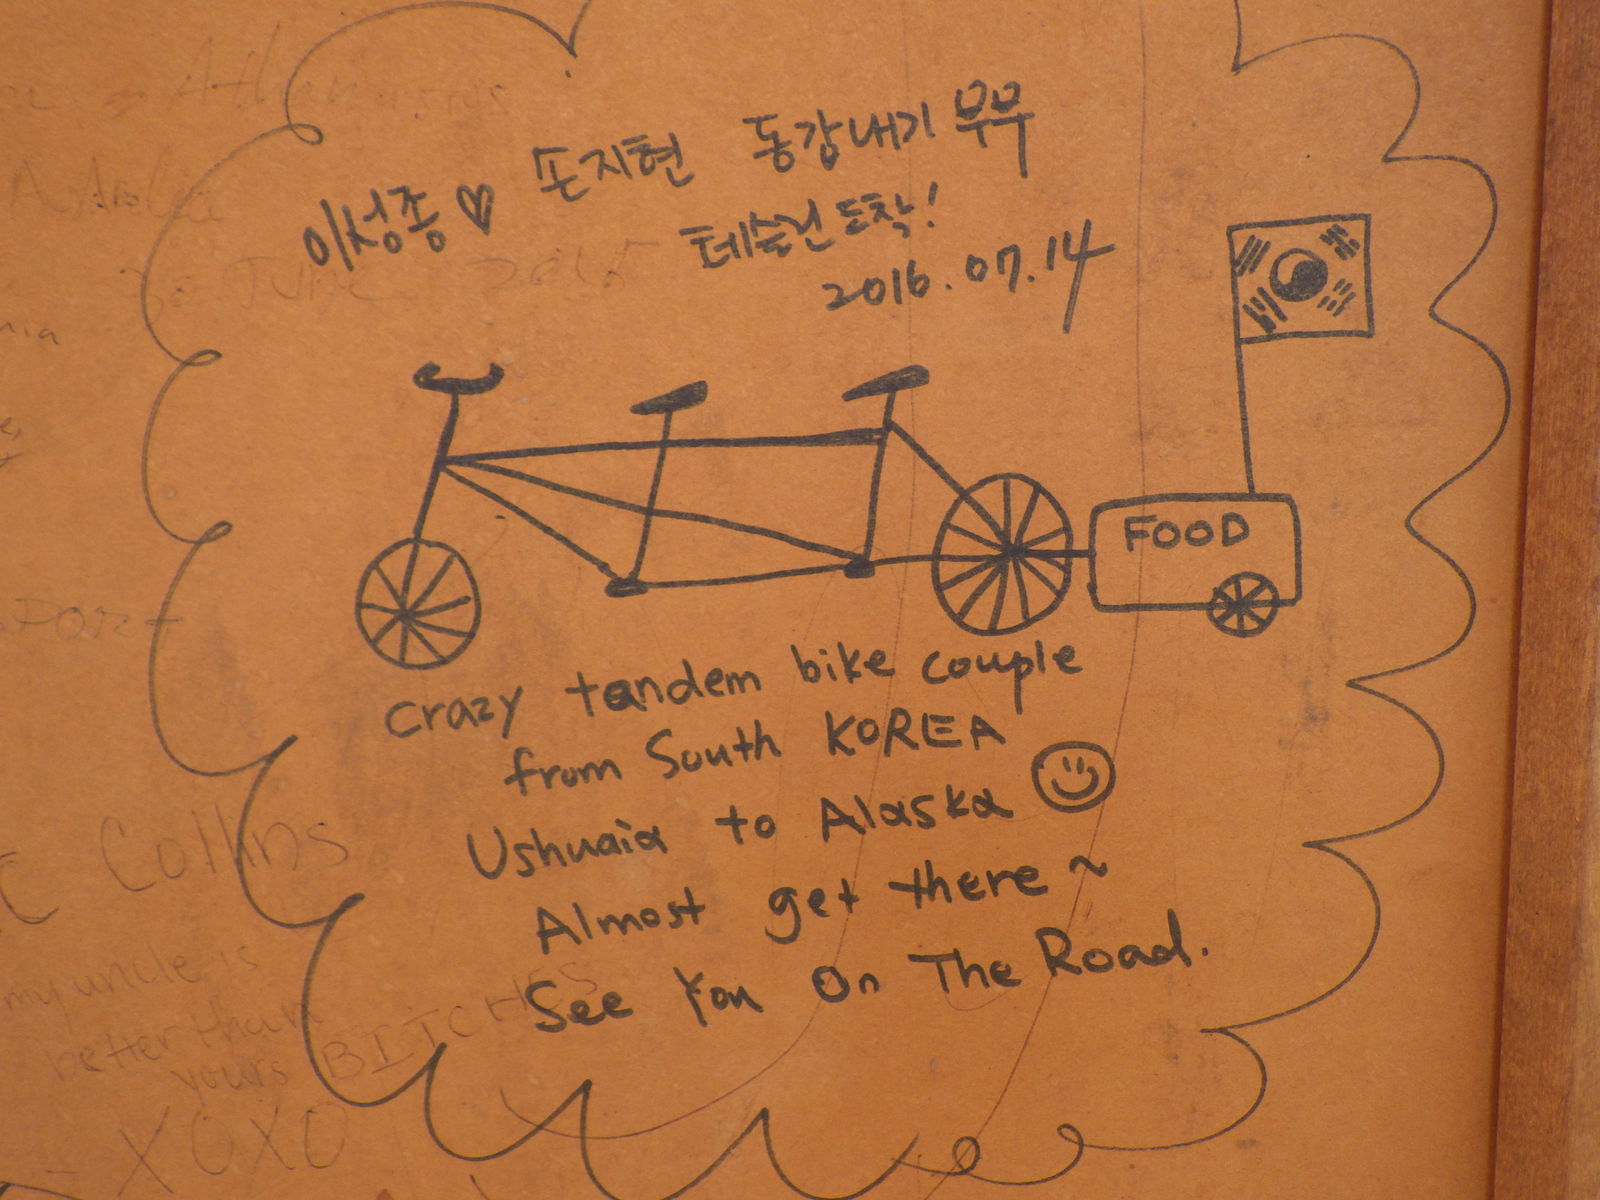 이성종 ♡ 손지현 동갑내기 부부
테슬린 도착!
2016.07.14
FOOD
crazy tandem bike couple
from South KOREA
Ushuaia to Alaska
Almost get there ~
See You On The Road.
Collins
my uncle is
better than
yours BITCHES
XOXO